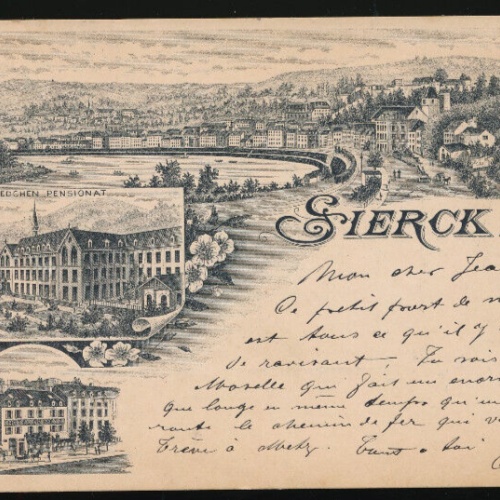 EDCHEN PENSIONAT
SIERCK
Mon cher Jea
Ce petit port de M
est tous ce qu'il y
de ravissant. Tu vois
Moselle qui fait un enorm
que longe en même temps qu'un
route le chemin de fer qui v
Trèves à Metz. Tout à toi